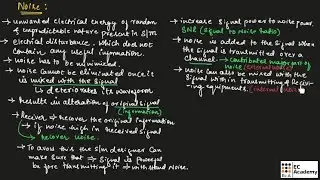 Noise:
→ unwanted electrical energy of random
& unpredictable nature present in s/m
→ electrical disturbance, which does not
contain any useful information.
→ noise has to be minimized.
→ noise cannot be eliminated once it
is mixed with the signal
↳ deteriorates its waveform
→ Results in alteration of original signal
(information)
→ Receiver → recover the original information
→ if noise high in received signal
↳ recover noise.
→ To avoid this the s/m designer can
make sure that → signal is powerful
before transmitting it → withstand noise.
→ increase signal power to noise power.
SNR (Signal to Noise Ratio)
→ noise is added to the signal when
the signal is transmitted over a
channel → contributes major part of
noise (External noise)
→ noise can also be mixed with the
signal within transmitting & receiv-
ing equipments. (internal noise)
EC
Academy